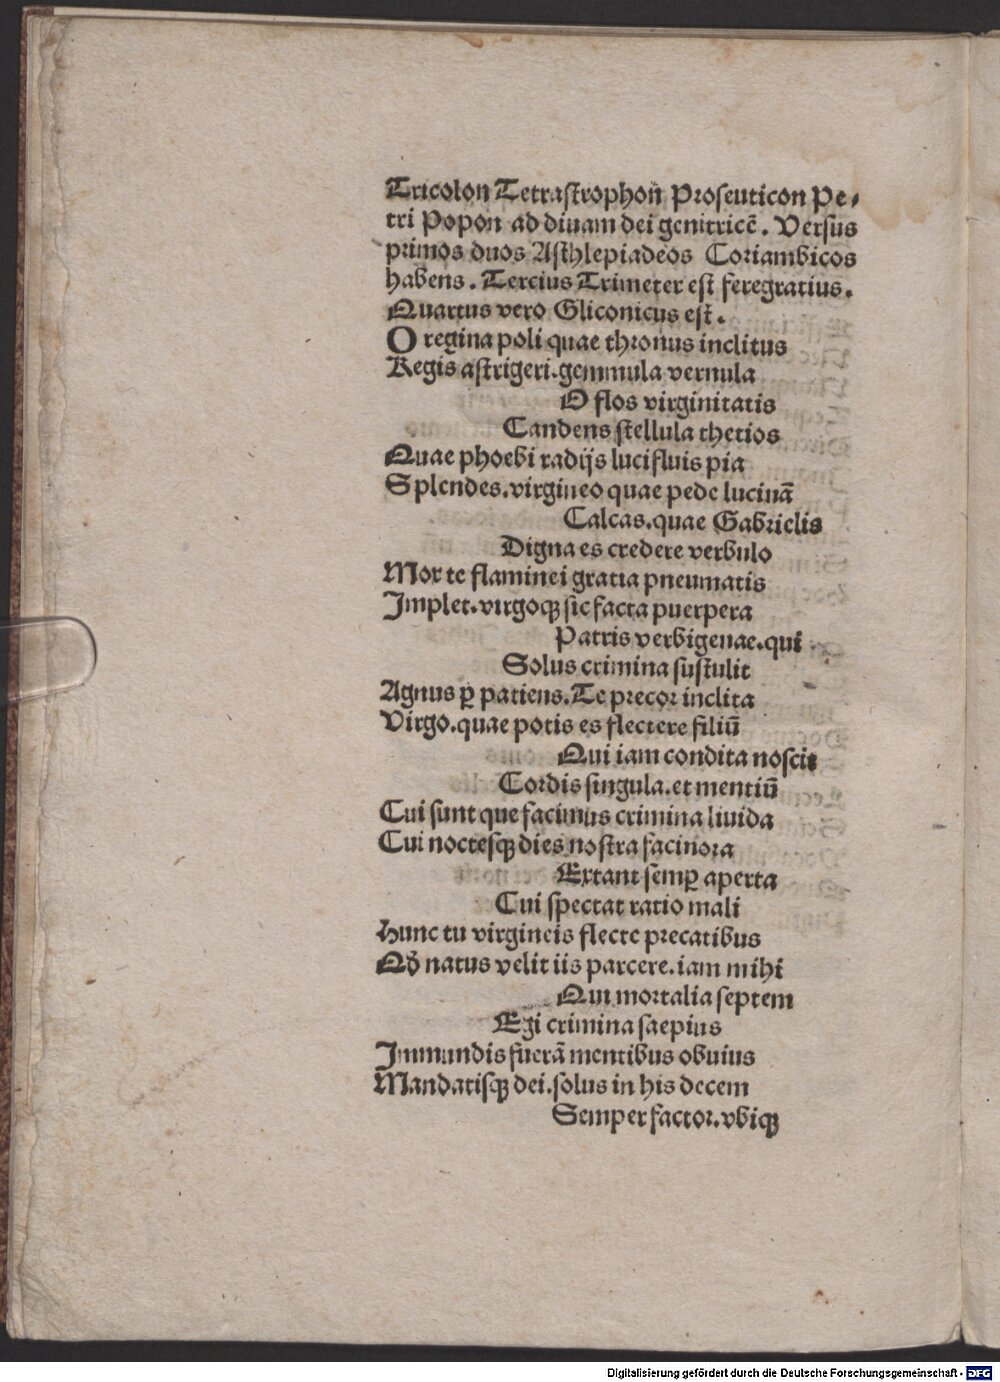 Tricolon Tetraſtrophoñ Proſeuticon Pe⸗
tri Popon ad diuam dei genitricē. Verſus
primos duos Aſthlepiadeos Coriambicos
habens. Tercius Trimeter eſt feregratius.
Quartus vero Gliconicus eſt.
O regina poli quae thronus inclitus
Regis aſtrigeri.gemmula vernula
O flos virginitatis
Candens ſtellula thetios
Quae phoebi radijs lucifluis pia
Splendes.virgineo quae pede lucinā
Calcas.quae Gabrielis
Digna es credere verbulo
Mox te flaminei gratia pneumatis
Implet.virgoqꝫ ſic facta puerpera
Patris verbigenae.qui
Solus crimina ſuſtulit
Agnus ꝑ patiens.Te precor inclita
Virgo.quae potis es flectere filiū
Qui iam condita noſcit
Cordis ſingula.et mentiū
Cui ſunt que facimus crimina liuida
Cui nocteſqꝫ dies noſtra facinora
Extant ſemꝑ aperta
Cui ſpectat ratio mali
Hunc tu virgineis flecte precatibus
Qď natus velit iis parcere.iam mihi
Qui mortalia ſeptem
Egi crimina ſaepius
Immundis fuerā mentibus obuius
Mandatiſqꝫ dei.ſolus in his decem
Semper factor.vbiqꝫ
Digitalisierung gefördert durch die Deutsche Forschungsgemeinschaft - DFG